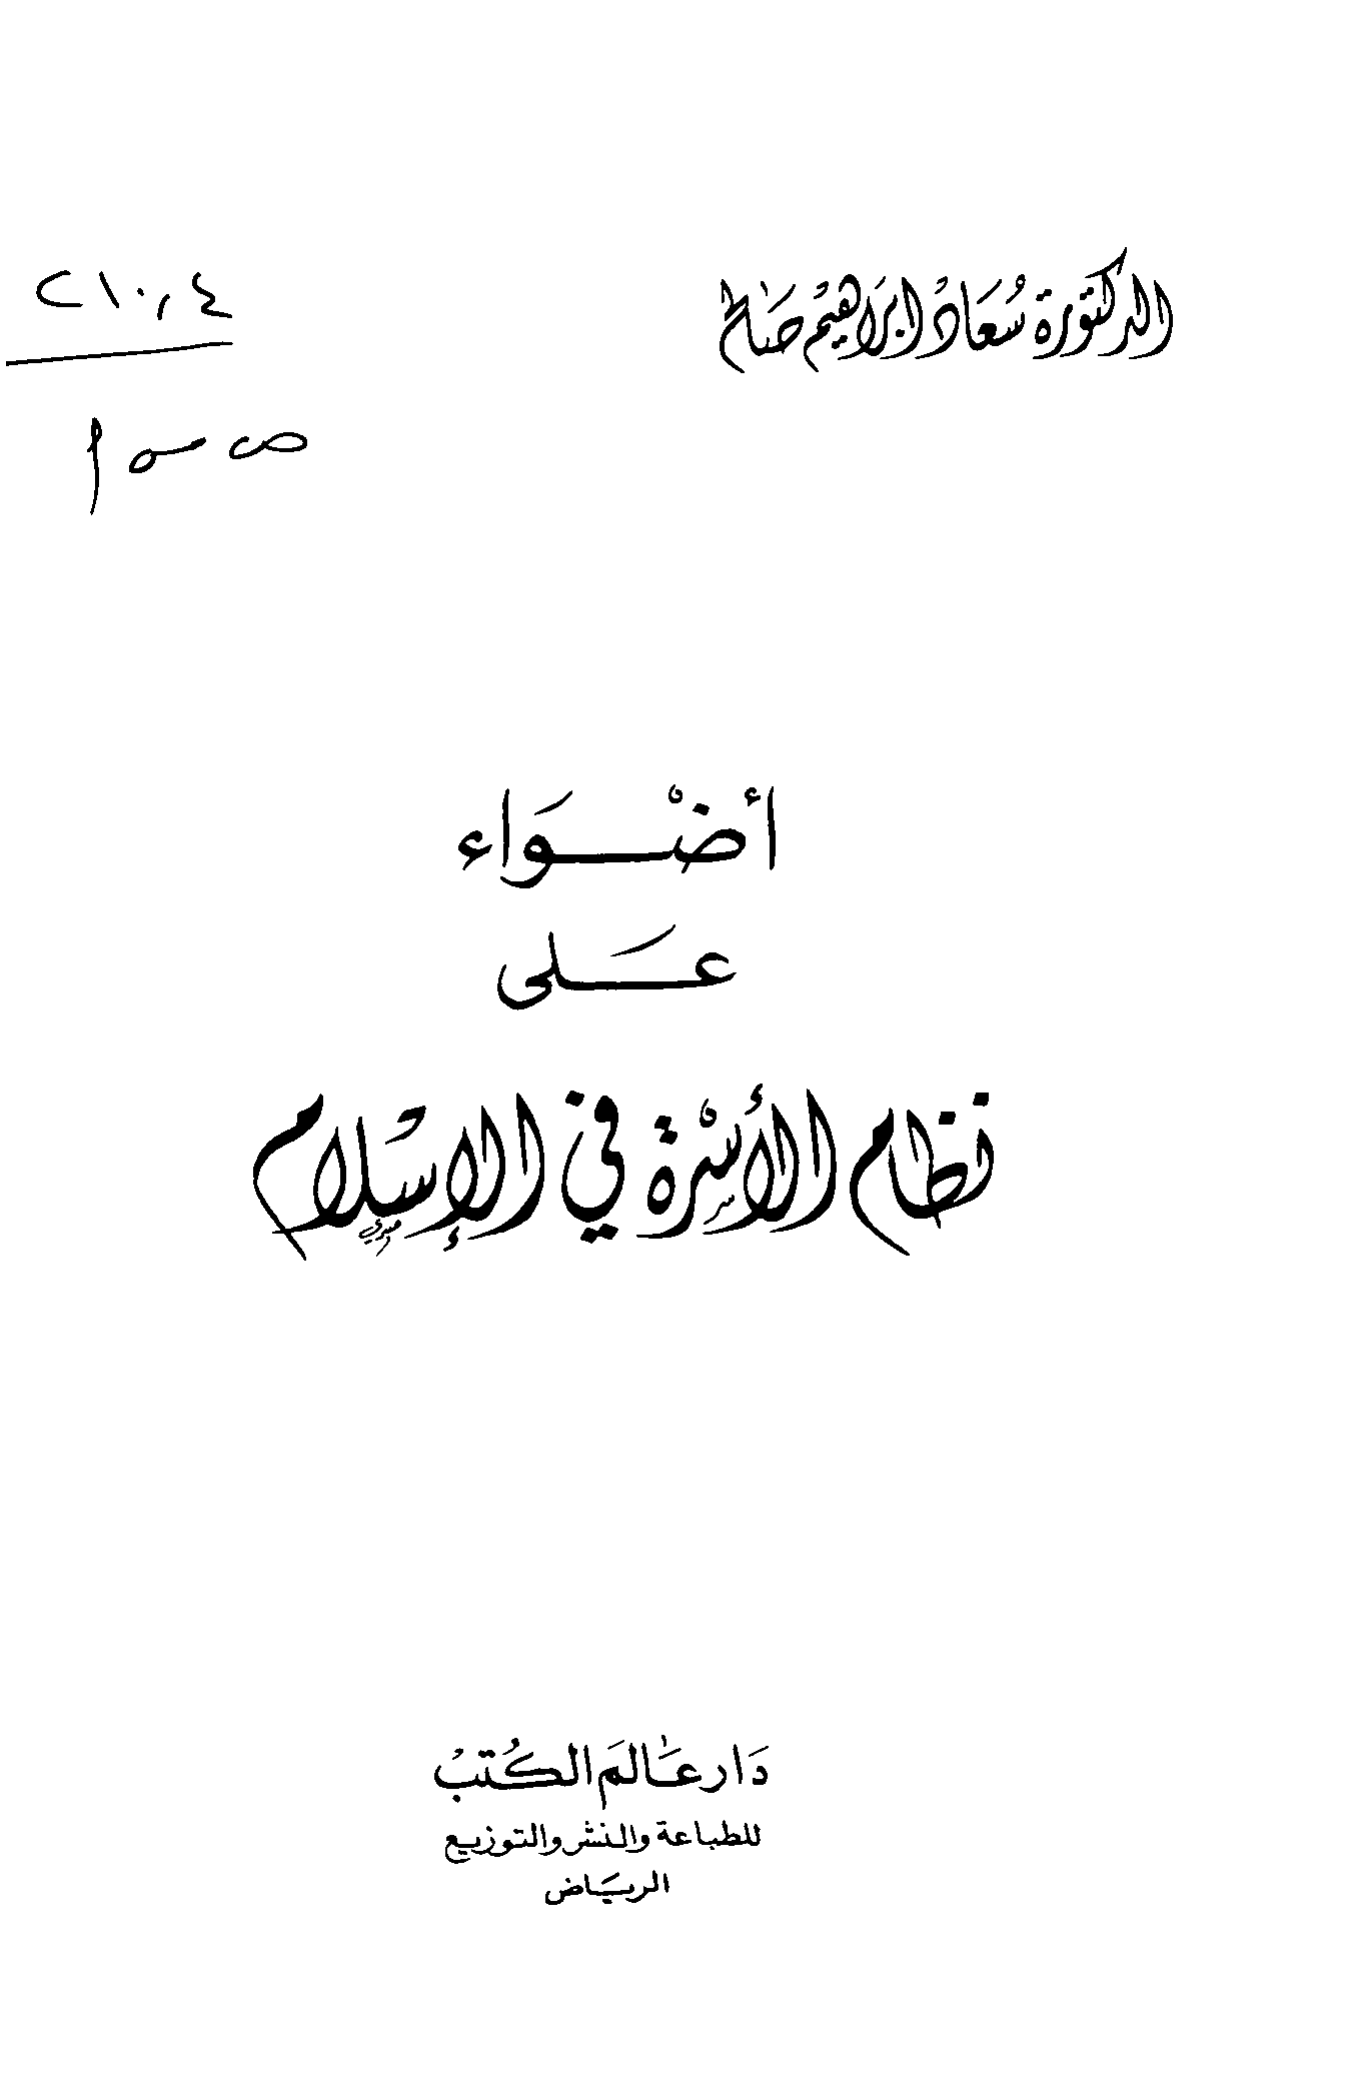 الدكتورة سُعَاد ابرَاهيْم صَالح
٢١٠,٤
ص س أ
أضْوَاء
عَلى
نظام الأسْرة في الإسْلام
دَار عَالم الكُتبْ
للطباعة والنشر والتوزيع
الريَاض